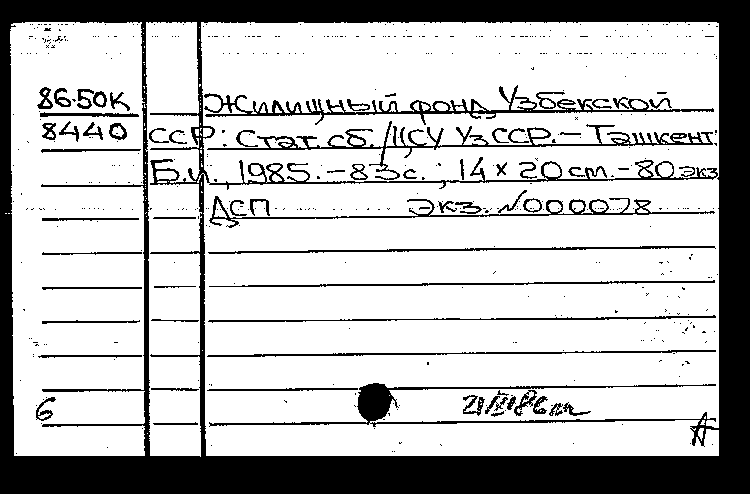 86-50К Жилищный фонд Узбекской
8440 ССР: Стат. сб. / ЦСУ УзССР. – Ташкент:
Б.и., 1985. – 83 с. ; 14 × 20 см. – 80 экз
ДСП Экз. №000078
6